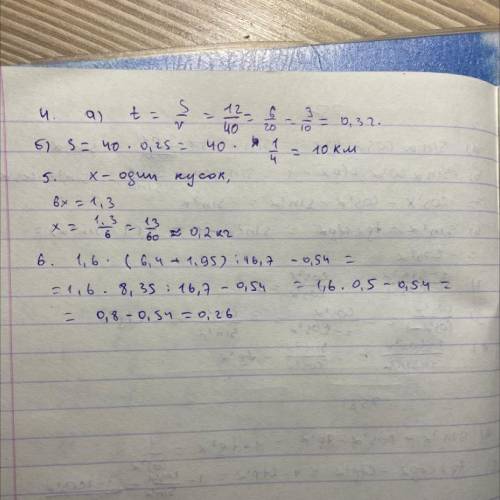 4. а) t = S/v = 12/40 = 6/20 = 3/10 = 0,3г.
б) S = 40 · 0,25 = 40 · 1/4 = 10 км
5. x - один кусок,
6x = 1,3
x = 1.3/6 = 13/60 ≈ 0,2 кг
6. 1,6 · (6,4 + 1,95) : 16,7 - 0,54 =
= 1,6 · 8,35 : 16,7 - 0,54 = 1,6 · 0,5 - 0,54 =
= 0,8 - 0,54 = 0,26